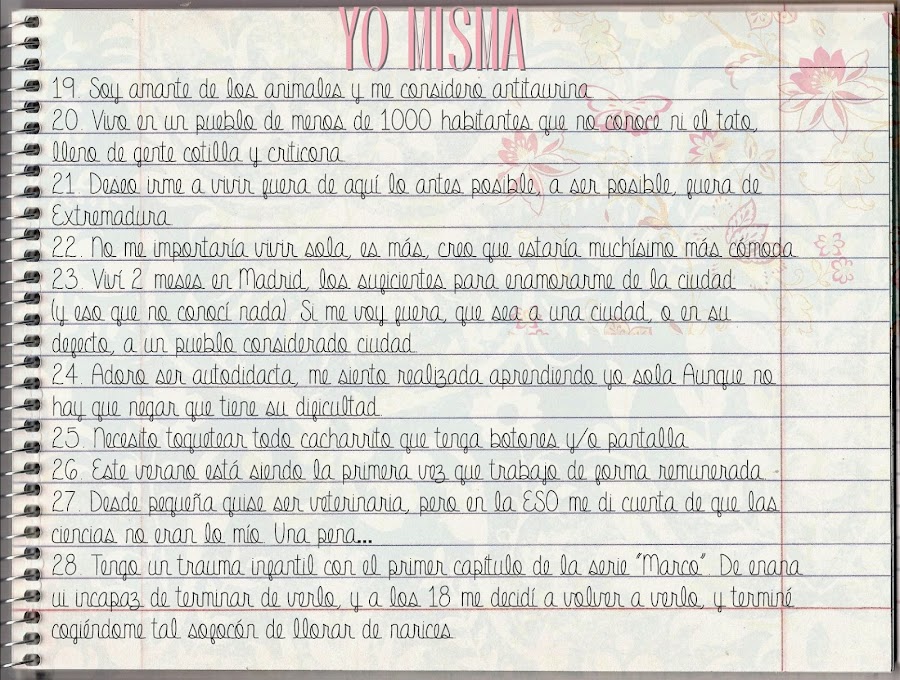 YO MISMA
19. Soy amante de los animales y me considero antitaurina
20. Vivo en un pueblo de menos de 1000 habitantes que no conoce ni el tato,
lleno de gente cotilla y criticona
21. Deseo irme a vivir fuera de aquí lo antes posible, a ser posible, fuera de
Extremadura
22. No me importaría vivir sola, es más, creo que estaría muchísimo más cómoda
23. Viví 2 meses en Madrid, los suficientes para enamorarme de la ciudad
(y eso que no conocí nada) Si me voy fuera, que sea a una ciudad, o en su
defecto, a un pueblo considerado ciudad
24. Adoro ser autodidacta, me siento realizada aprendiendo yo sola Aunque no
hay que negar que tiene su dificultad
25. Necesito toquetear todo cacharrito que tenga botones y/o pantalla
26. Este verano está siendo la primera vez que trabajo de forma remunerada
27. Desde pequeña quise ser veterinaria, pero en la ESO me di cuenta de que las
ciencias no eran lo mío. Una pena...
28. Tengo un trauma infantil con el primer capítulo de la serie "Marco". De enana
ui incapaz de terminar de verlo, y a los 18 me decidí a volver a verlo, y terminé
cogiéndome tal sofocón de llorar de narices